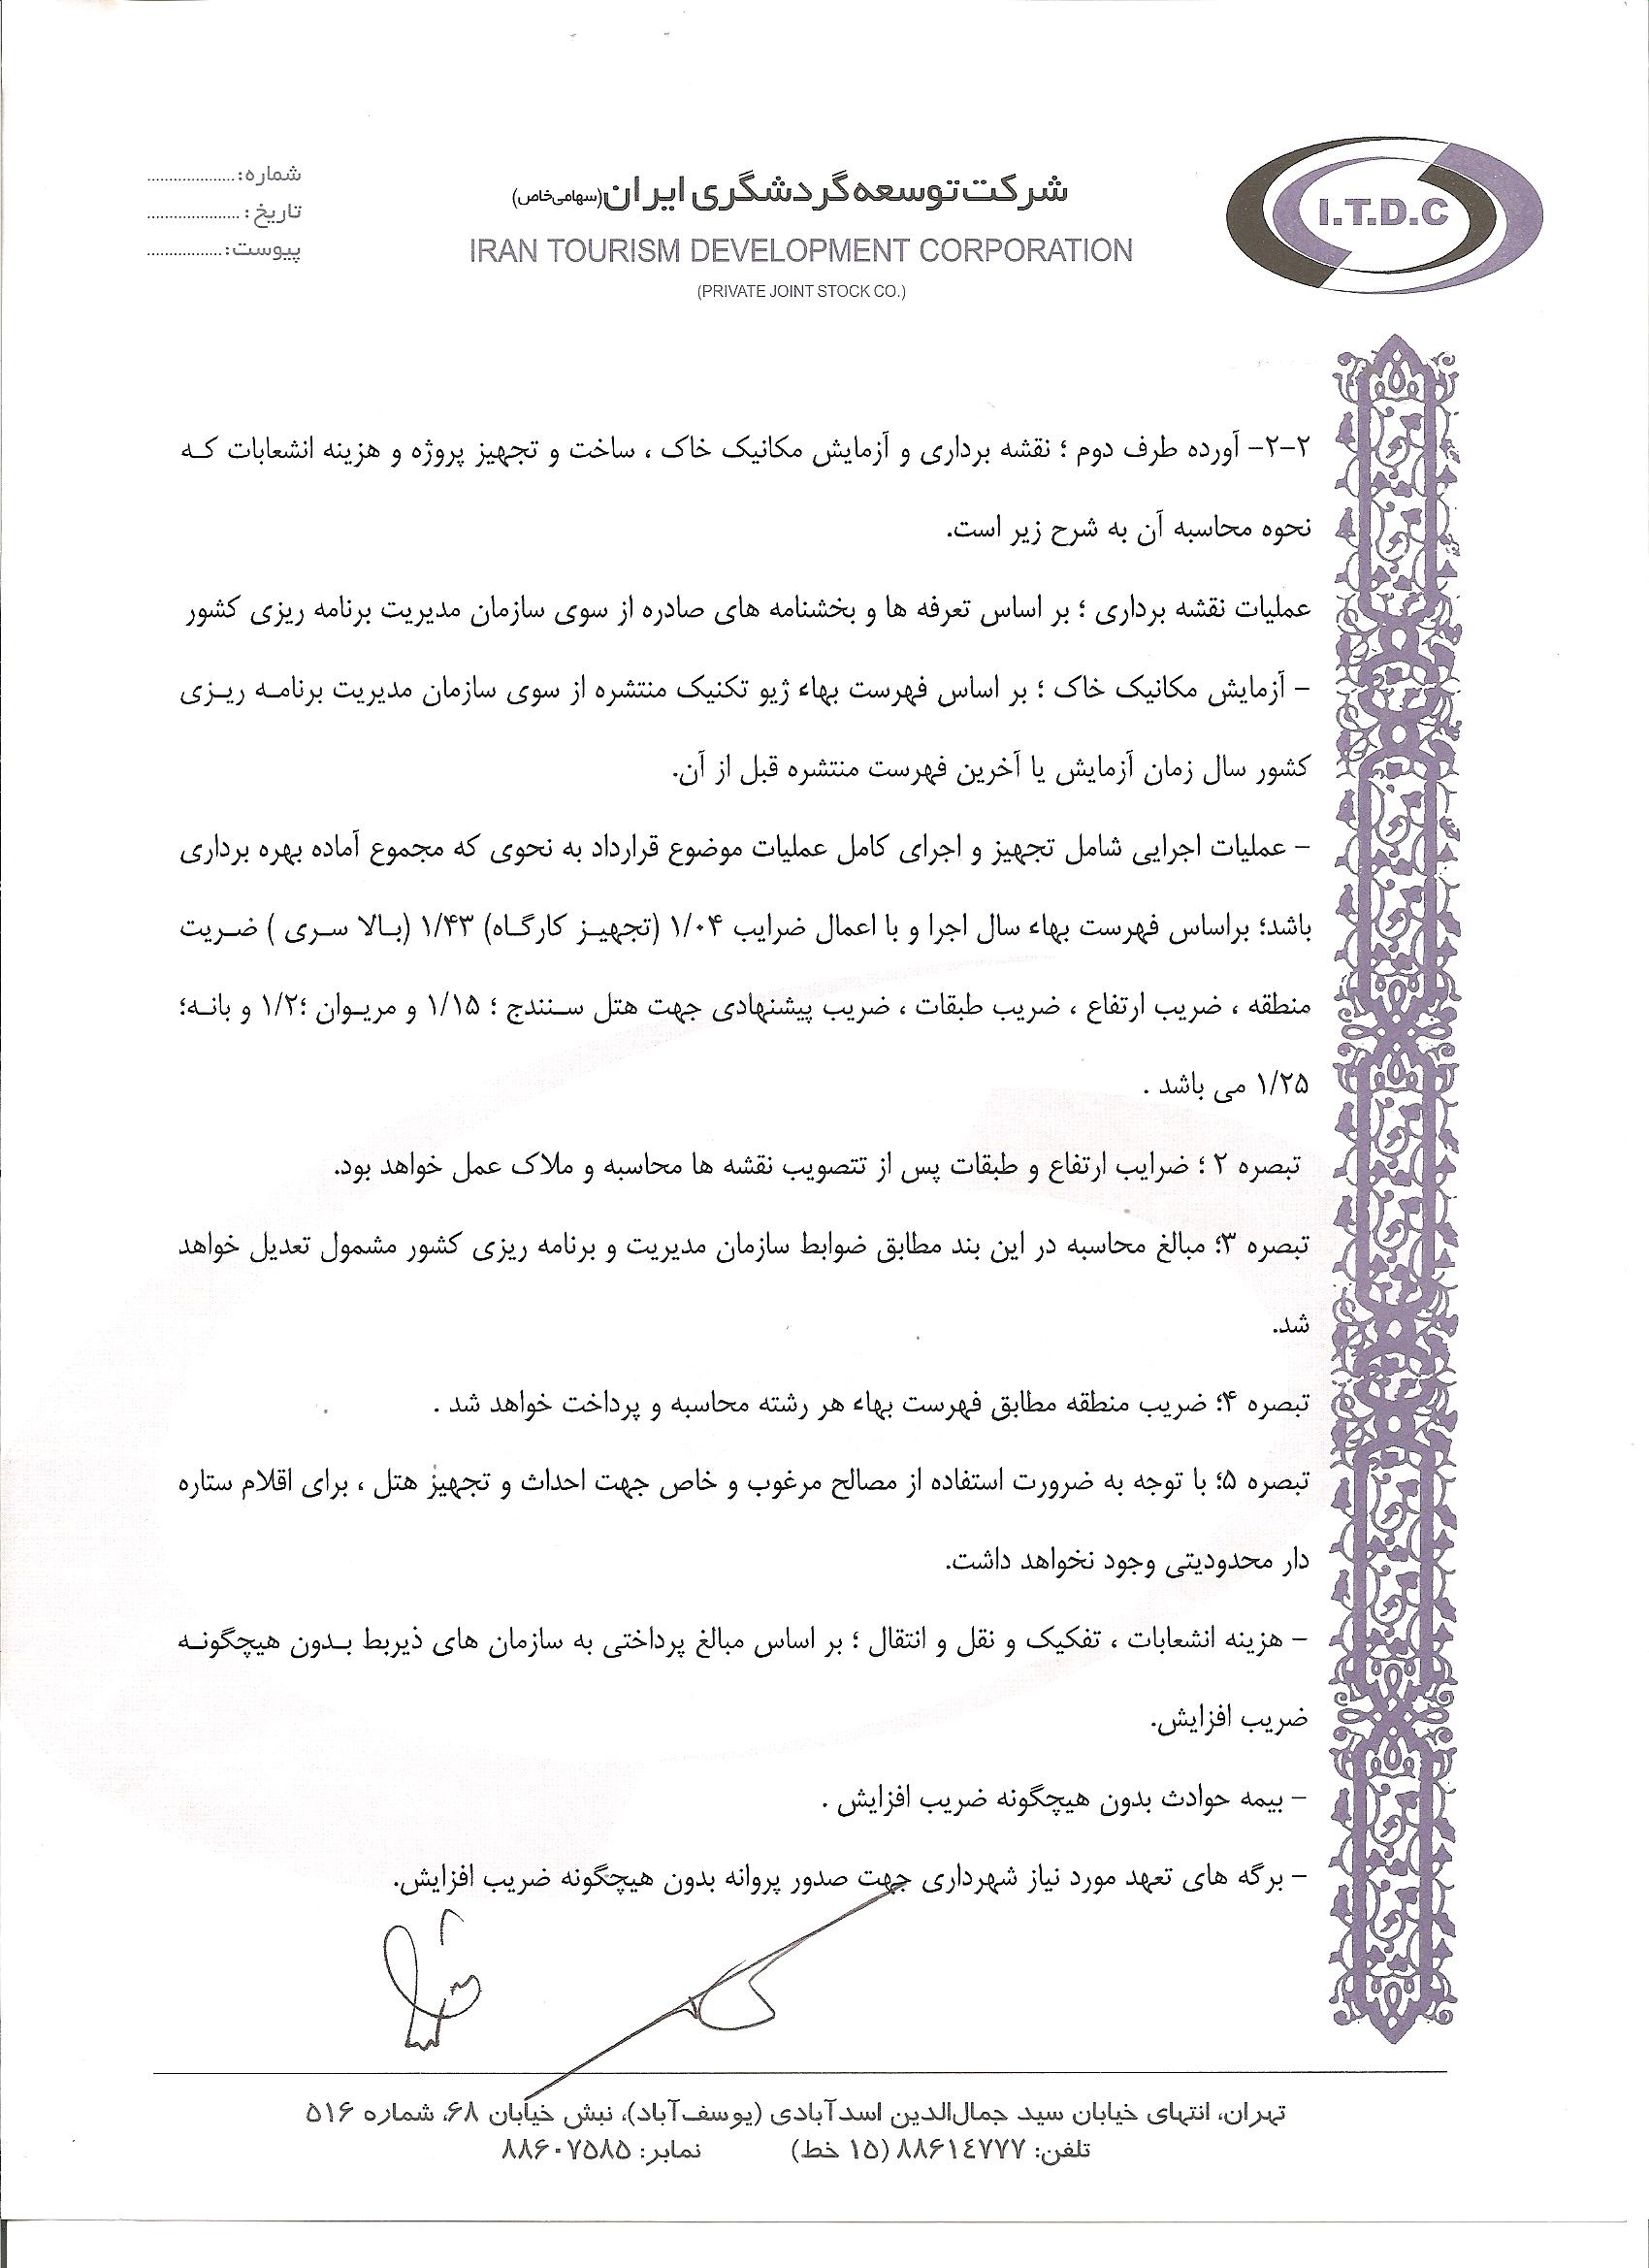 شماره:....................
تاریخ:.....................
پیوست:.................
شرکت توسعه گردشگری ایران(سهامی خاص)
IRAN TOURISM DEVELOPMENT CORPORATION
(PRIVATE JOINT STOCK CO.)
I.T.D.C
۲-۲- آورده طرف دوم ؛ نقشه برداری و آزمایش مکانیک خاک ، ساخت و تجهیز پروژه و هزینه انشعابات که
نحوه محاسبه آن به شرح زیر است.
عملیات نقشه برداری ؛ بر اساس تعرفه ها و بخشنامه های صادره از سوی سازمان مدیریت برنامه ریزی کشور
- آزمایش مکانیک خاک ؛ بر اساس فهرست بهاء ژیو تکنیک منتشره از سوی سازمان مدیریت برنامه ریزی
کشور سال زمان آزمایش یا آخرین فهرست منتشره قبل از آن.
- عملیات اجرایی شامل تجهیز و اجرای کامل عملیات موضوع قرارداد به نحوی که مجموع آماده بهره برداری
باشد؛ براساس فهرست بهاء سال اجرا و با اعمال ضرایب ۱/۰۴ (تجهیز کارگاه) ۱/۴۳ (بالا سری ) ضریت
منطقه ، ضریب ارتفاع ، ضریب طبقات ، ضریب پیشنهادی جهت هتل سنندج ؛ ۱/۱۵ و مریوان ؛۱/۲ و بانه؛
۱/۲۵ می باشد .
تبصره ۲ ؛ ضرایب ارتفاع و طبقات پس از تتصویب نقشه ها محاسبه و ملاک عمل خواهد بود.
تبصره ۳؛ مبالغ محاسبه در این بند مطابق ضوابط سازمان مدیریت و برنامه ریزی کشور مشمول تعدیل خواهد
شد.
تبصره ۴؛ ضریب منطقه مطابق فهرست بهاء هر رشته محاسبه و پرداخت خواهد شد .
تبصره ۵؛ با توجه به ضرورت استفاده از مصالح مرغوب و خاص جهت احداث و تجهیز هتل ، برای اقلام ستاره
دار محدودیتی وجود نخواهد داشت.
- هزینه انشعابات ، تفکیک و نقل و انتقال ؛ بر اساس مبالغ پرداختی به سازمان های ذیربط بدون هیچگونه
ضریب افزایش.
- بیمه حوادث بدون هیچگونه ضریب افزایش .
- برگه های تعهد مورد نیاز شهرداری جهت صدور پروانه بدون هیچگونه ضریب افزایش.
تهران، انتهای خیابان سید جمال‌الدین اسدآبادی (یوسف‌آباد)، نبش خیابان ۶۸، شماره ۵۱۶
تلفن: ۸۸۶۱۴۷۷۷ (۱۵ خط) نمابر: ۸۸۶۰۷۵۸۵